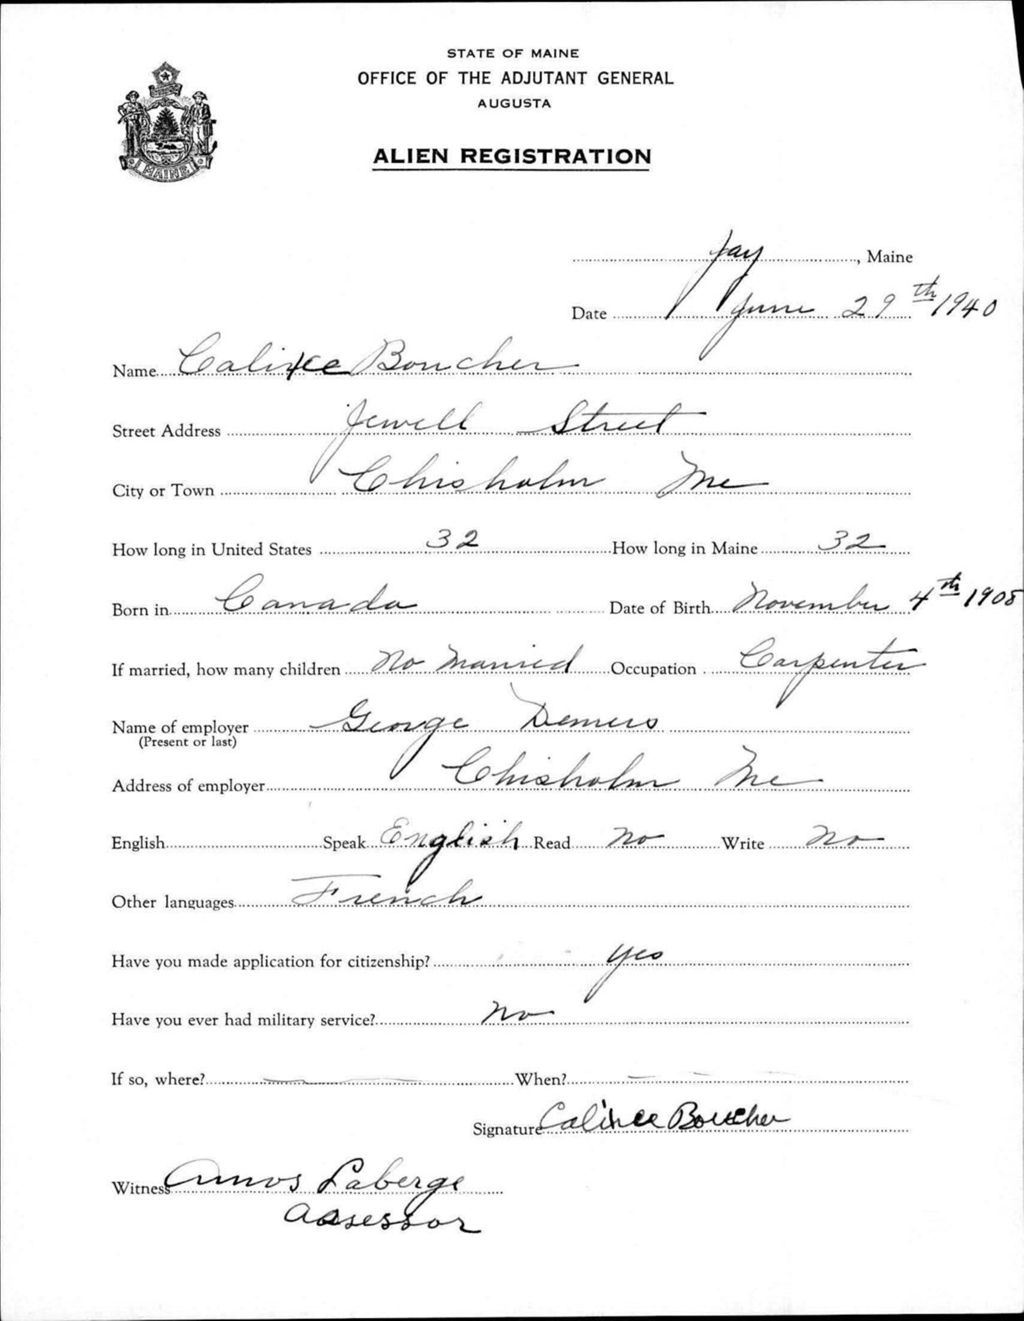 STATE OF MAINE
OFFICE OF THE ADJUTANT GENERAL
AUGUSTA
ALIEN REGISTRATION
MAINE
Jay, Maine
Date June 29th 1940
Name Calixte Boucher
Street Address Jewell Street
City or Town Chisholm Me
How long in United States 32 How long in Maine 32
Born in Canada Date of Birth November 4th 1908
If married, how many children No Married Occupation Carpenter
Name of employer George Demers
(Present or last)
Address of employer Chisholm Me
English Speak English Read No Write No
Other languages French
Have you made application for citizenship? yes
Have you ever had military service? No
If so, where? — When? —
Signature Boucher
Witness Amos Laberge
Assessor